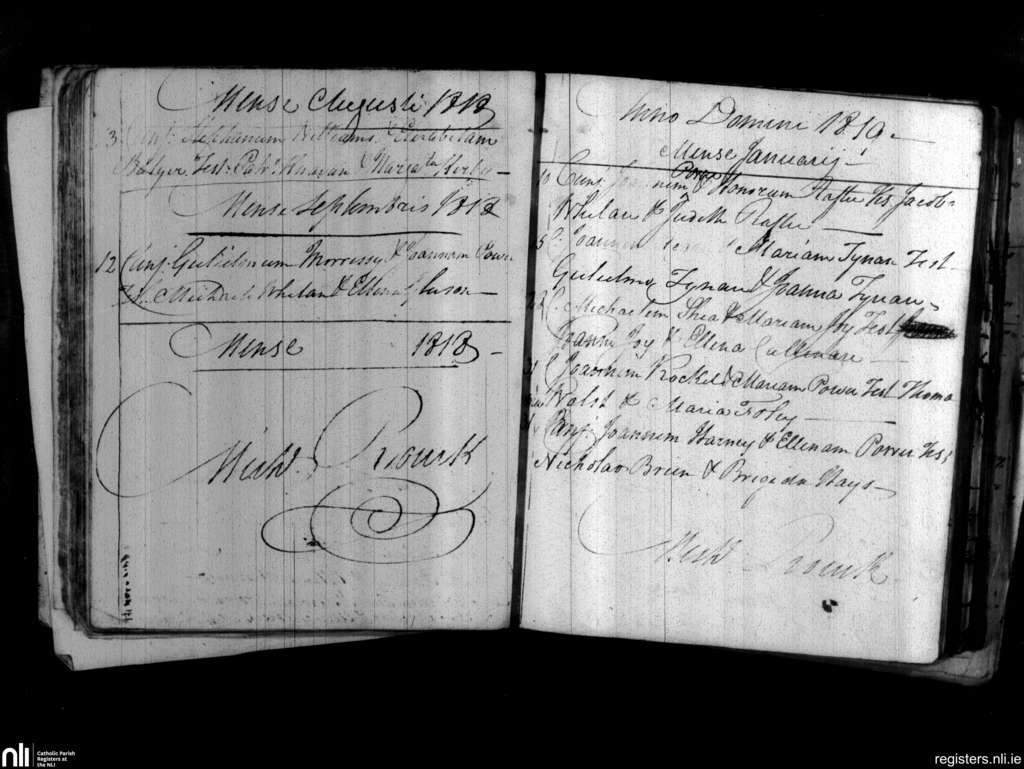 Mense Augusti 1818
3 Conj. Stephanum Williams & Elizabetam
Bolger Test: Patr: & Margta
Mense Septembris 1818
12 Conj. Gulielmum Morrissy & Joannam Power
Ts. Michaele Whelan & Ellena
Mense 1818
Michl. Prourk
Anno Domini 1819
Mense Januarij
10 Conj. Joannem Power & Honoram Ts. Jacob
Whelan & Judith
Joannem & Mariam Tynan Test
Gulielmo Tynan & Joanna Tynan
Michaelem Shea & Mariam Joy Test
Joanne Joy & Ellena Cullinan
Joannem & Mariam Power Test Thoma
Walsh & Maria Foley
Conj. Joannem Harney & Ellenam Power Ts:
Nicholao Brien & Brigida Hays
Michl. Prourk
nli
Catholic Parish
Registers at
the NLI
registers.nli.ie